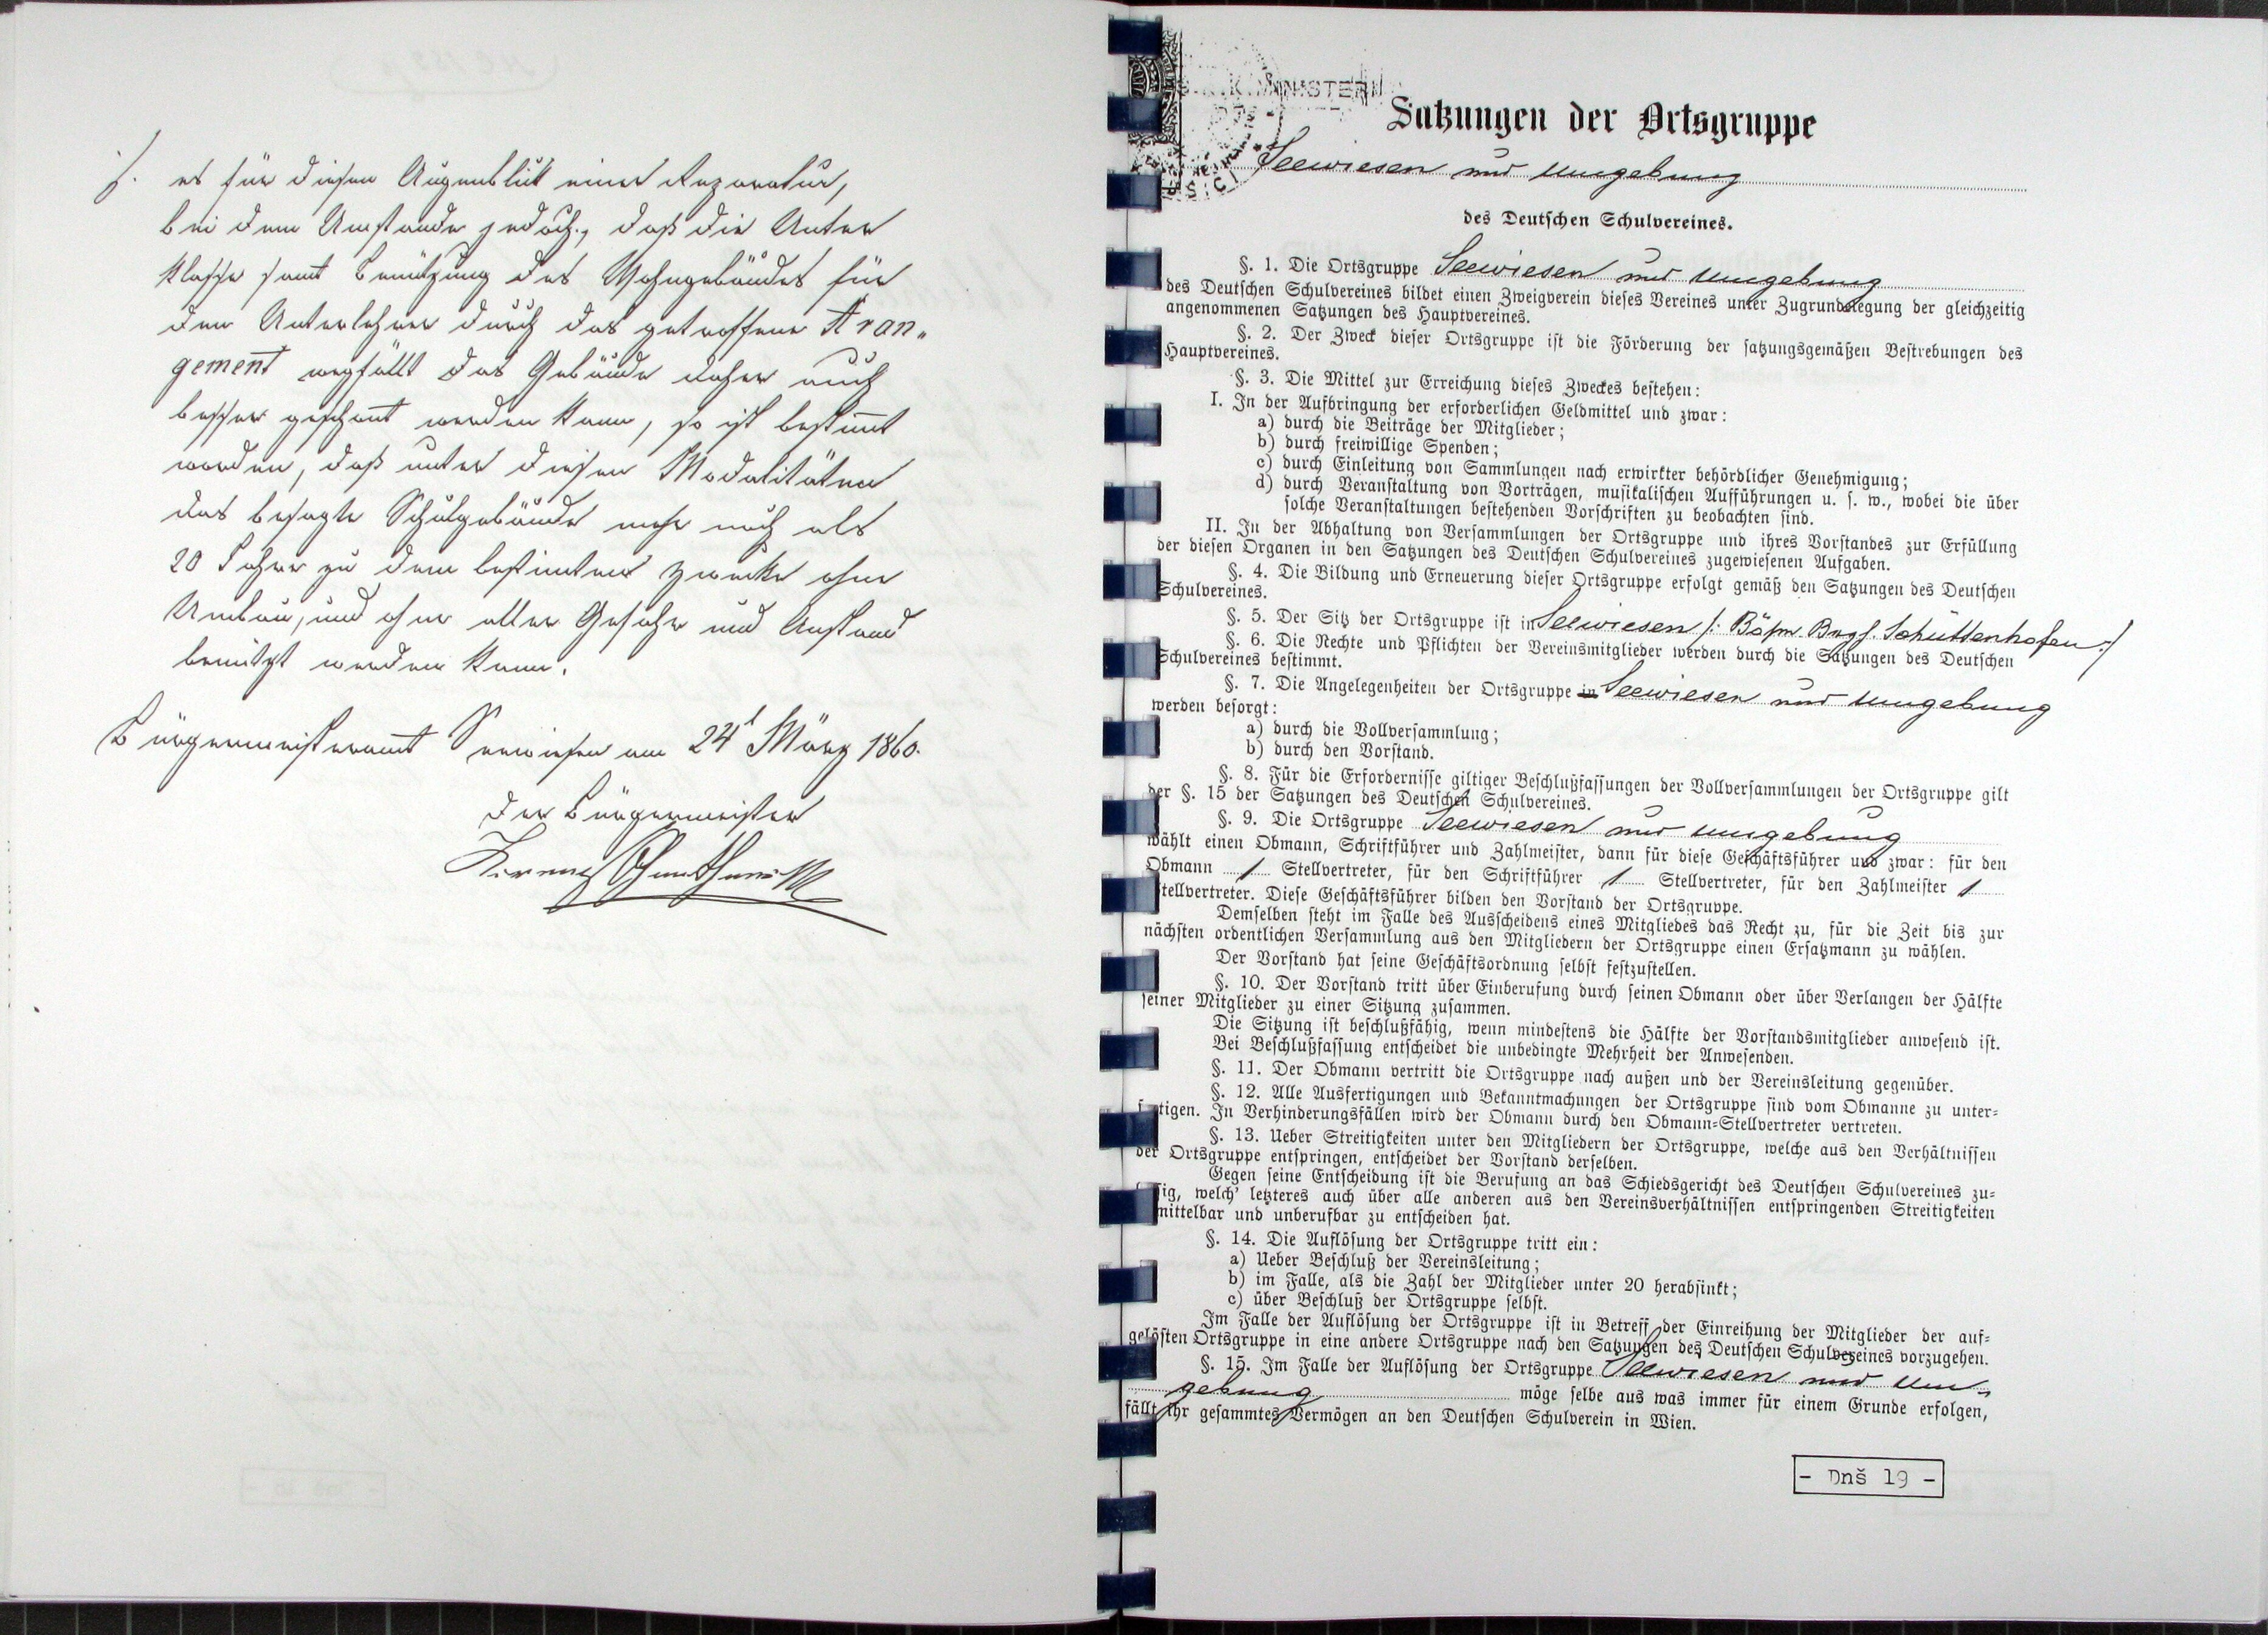 /. es für diesen Augenblick einer Reparatur,
bei dem Umstande jedoch, daß die Unter
klasse samt Benützung des Wohngebäudes für
den Unterlehrer durch das getroffene Aran„
gement wegfällt das Gebäude daher auch
besser geschont werden kann, so ist bestimmt
worden, daß unter diesen Modalitäten
das besagte Schulgebäude mehr noch als
20 Jahre zu dem bestimmten Zwecke ohne
Umbau, und ohne aller Gefahr und Anstand
benützt werden kann.
Bürgermeisteramt Seewiesen am 24t März 1860.
Der Bürgermeister
K. K. MINISTERI
Satzungen der Ortsgruppe
Seewiesen und Umgebung
des Deutschen Schulvereines.
§. 1. Die Ortsgruppe Seewiesen und Umgebung
des Deutschen Schulvereines bildet einen Zweigverein dieses Vereines unter Zugrundelegung der gleichzeitig
angenommenen Satzungen des Hauptvereines.
§. 2. Der Zweck dieser Ortsgruppe ist die Förderung der satzungsgemäßen Bestrebungen des
Hauptvereines.
§. 3. Die Mittel zur Erreichung dieses Zweckes bestehen:
I. In der Aufbringung der erforderlichen Geldmittel und zwar:
a) durch die Beiträge der Mitglieder;
b) durch freiwillige Spenden;
c) durch Einleitung von Sammlungen nach erwirkter behördlicher Genehmigung;
d) durch Veranstaltung von Vorträgen, musikalischen Aufführungen u. s. w., wobei die über
solche Veranstaltungen bestehenden Vorschriften zu beobachten sind.
II. In der Abhaltung von Versammlungen der Ortsgruppe und ihres Vorstandes zur Erfüllung
der diesen Organen in den Satzungen des Deutschen Schulvereines zugewiesenen Aufgaben.
§. 4. Die Bildung und Erneuerung dieser Ortsgruppe erfolgt gemäß den Satzungen des Deutschen
Schulvereines.
§. 5. Der Sitz der Ortsgruppe ist in Seewiesen /: Böhm. Bzgs. Schüttenhofen :/
§. 6. Die Rechte und Pflichten der Vereinsmitglieder werden durch die Satzungen des Deutschen
Schulvereines bestimmt.
§. 7. Die Angelegenheiten der Ortsgruppe in Seewiesen und Umgebung
werden besorgt:
a) durch die Vollversammlung;
b) durch den Vorstand.
§. 8. Für die Erfordernisse giltiger Beschlußfassungen der Vollversammlungen der Ortsgruppe gilt
der §. 15 der Satzungen des Deutschen Schulvereines.
§. 9. Die Ortsgruppe Seewiesen und Umgebung
wählt einen Obmann, Schriftführer und Zahlmeister, dann für diese Geschäftsführer und zwar: für den
Obmann 1 Stellvertreter, für den Schriftführer 1 Stellvertreter, für den Zahlmeister 1
Stellvertreter. Diese Geschäftsführer bilden den Vorstand der Ortsgruppe.
Demselben steht im Falle des Ausscheidens eines Mitgliedes das Recht zu, für die Zeit bis zur
nächsten ordentlichen Versammlung aus den Mitgliedern der Ortsgruppe einen Ersatzmann zu wählen.
Der Vorstand hat seine Geschäftsordnung selbst festzustellen.
§. 10. Der Vorstand tritt über Einberufung durch seinen Obmann oder über Verlangen der Hälfte
seiner Mitglieder zu einer Sitzung zusammen.
Die Sitzung ist beschlußfähig, wenn mindestens die Hälfte der Vorstandsmitglieder anwesend ist.
Bei Beschlußfassung entscheidet die unbedingte Mehrheit der Anwesenden.
§. 11. Der Obmann vertritt die Ortsgruppe nach außen und der Vereinsleitung gegenüber.
§. 12. Alle Ausfertigungen und Bekanntmachungen der Ortsgruppe sind vom Obmanne zu unter-
fertigen. In Verhinderungsfällen wird der Obmann durch den Obmann-Stellvertreter vertreten.
§. 13. Ueber Streitigkeiten unter den Mitgliedern der Ortsgruppe, welche aus den Verhältnissen
der Ortsgruppe entspringen, entscheidet der Vorstand derselben.
Gegen seine Entscheidung ist die Berufung an das Schiedsgericht des Deutschen Schulvereines zu-
lässig, welch' letzteres auch über alle anderen aus den Vereinsverhältnissen entspringenden Streitigkeiten
mittelbar und unberufbar zu entscheiden hat.
§. 14. Die Auflösung der Ortsgruppe tritt ein:
a) Ueber Beschluß der Vereinsleitung;
b) im Falle, als die Zahl der Mitglieder unter 20 herabsinkt;
c) über Beschluß der Ortsgruppe selbst.
Im Falle der Auflösung der Ortsgruppe ist in Betreff der Einreihung der Mitglieder der auf-
gelösten Ortsgruppe in eine andere Ortsgruppe nach den Satzungen des Deutschen Schulvereines vorzugehen.
§. 15. Im Falle der Auflösung der Ortsgruppe Seewiesen und Um-
gebung möge selbe aus was immer für einem Grunde erfolgen,
fällt ihr gesammtes Vermögen an den Deutschen Schulverein in Wien.
- Dnš 19 -